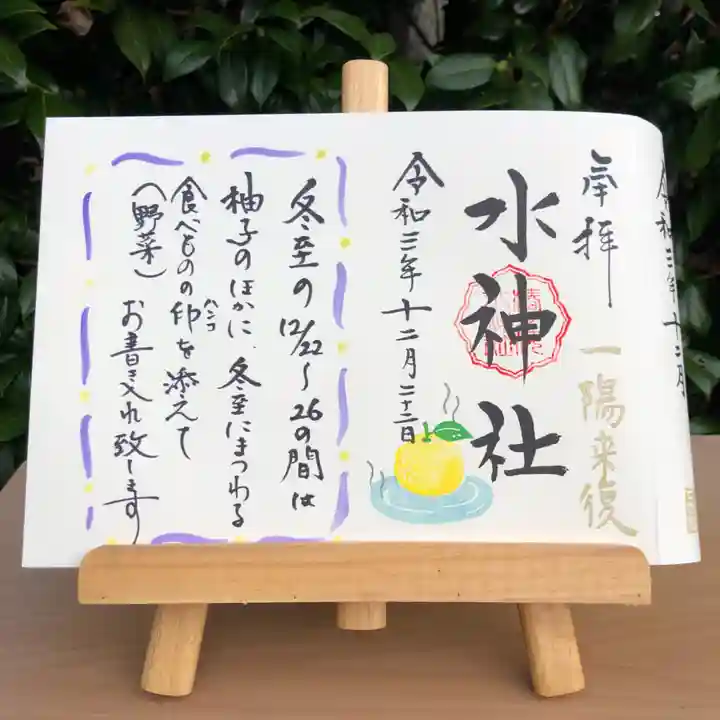 令和三年十二月
奉拝
一陽来復
水神社
令和三年十二月二十二日
冬至の12/22〜26の間は
柚子のほかに、冬至にまつわる
食べものの印を添えて
ハンコ
(野菜)
お書き入れ致します